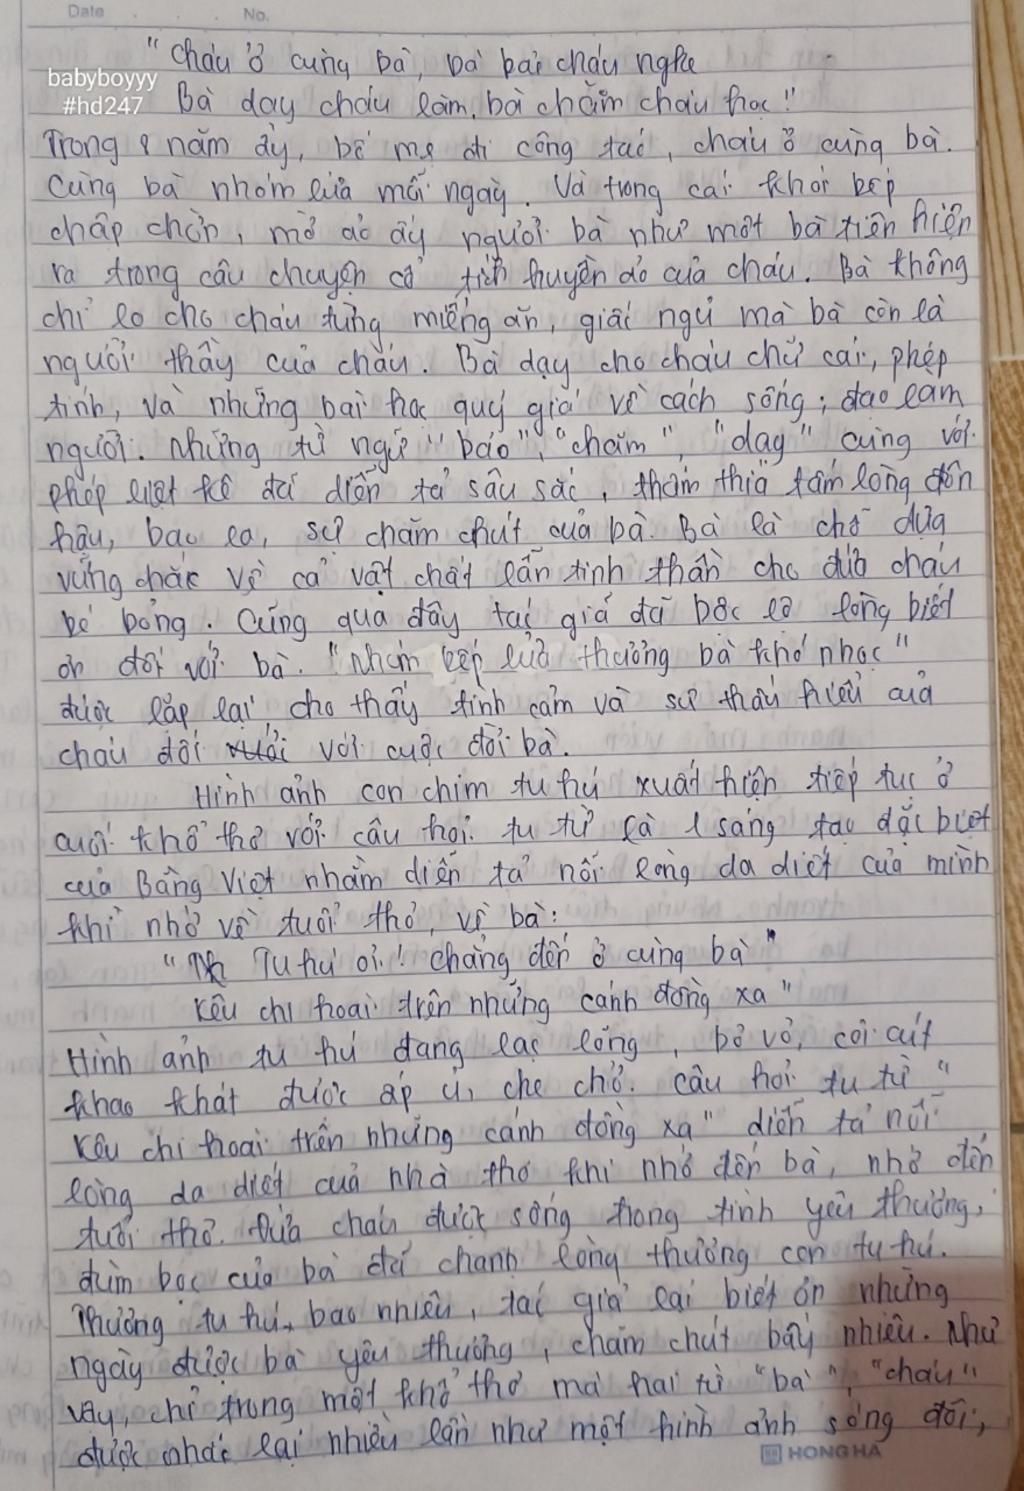 Date No.
"Cháu ở cùng bà, bà bảo cháu nghe
babyboyyy
#hd247
Bà dạy cháu làm, bà chăm cháu học"
Trong 8 năm ấy, bố mẹ đi công tác, cháu ở cùng bà.
Cùng bà nhóm lửa mỗi ngày. Và trong cái khói bếp
chập chờn, mờ ảo ấy người bà như một bà tiên hiện
ra trong câu chuyện cổ tích huyền ảo của cháu. Bà không
chỉ lo cho cháu từng miếng ăn, giấc ngủ mà bà còn là
người thầy của cháu. Bà dạy cho cháu chữ cái, phép
tính, và những bài học quý giá về cách sống, đạo làm
người. Những từ ngữ "bảo", "chăm", "dạy" cùng với
phép liệt kê đã diễn tả sâu sắc, thấm thía tấm lòng đôn
hậu, bao la, sự chăm chút của bà. Bà là chỗ dựa
vững chắc về cả vật chất lẫn tinh thần cho đứa cháu
bé bỏng. Cũng qua đây tác giả đã bộc lộ lòng biết
ơn đối với bà. "Nhóm bếp lửa thương bà khó nhọc"
được lặp lại, cho thấy tình cảm và sự thấu hiểu của
cháu đối với cuộc đời bà.
Hình ảnh con chim tu hú xuất hiện tiếp tục ở
cuối khổ thơ với câu hỏi tu từ là 1 sáng tạo đặc biệt
của Bằng Việt nhằm diễn tả nỗi lòng da diết của mình
khi nhớ về tuổi thơ, về bà:
"Tu hú ơi! chẳng đến ở cùng bà"
Kêu chi hoài trên những cánh đồng xa"
Hình ảnh tu hú đang lạc lõng, bơ vơ, côi cút
khao khát được ấp ủ, che chở. Câu hỏi tu từ "
Kêu chi hoài trên những cánh đồng xa" diễn tả nỗi
lòng da diết của nhà thơ khi nhớ đến bà, nhớ đến
tuổi thơ. Đứa cháu được sống trong tình yêu thương,
đùm bọc của bà đã chạnh lòng thương con tu hú.
Thương tu hú bao nhiêu, tác giả lại biết ơn những
ngày được bà yêu thương, chăm chút bấy nhiêu. Như
vậy, chỉ trong một khổ thơ mà hai từ "bà", "cháu"
được nhắc lại nhiều lần như một hình ảnh sóng đôi,
HONG HA